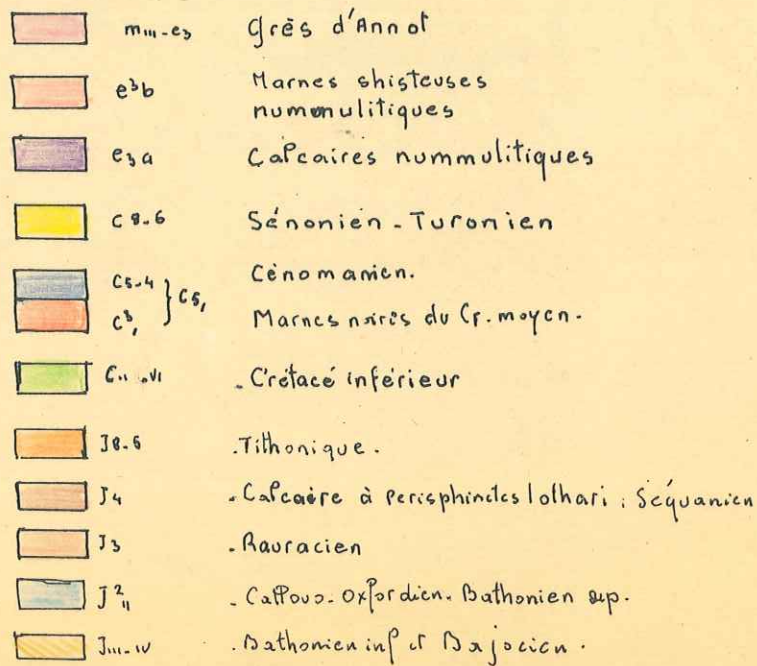 mııı-e3 Grès d'Annot
e3b Marnes shisteuses
numonulitiques
e3a Calcaires nummulitiques
C8-6 Sénonien - Turonien
C5-4 Cénomanien.
C5,
C3, Marnes noires du Cr. moyen.
Cıı-vı - Crétacé inférieur
J8-6 . Tithonique.
J4 . Calcaire à perisphinctes lothari : Séquanien
J3 . Rauracien
J2ıı - Callovo- Oxfordien. Bathonien sup.
Jııı-ıv . Bathonien inf et Bajocien.